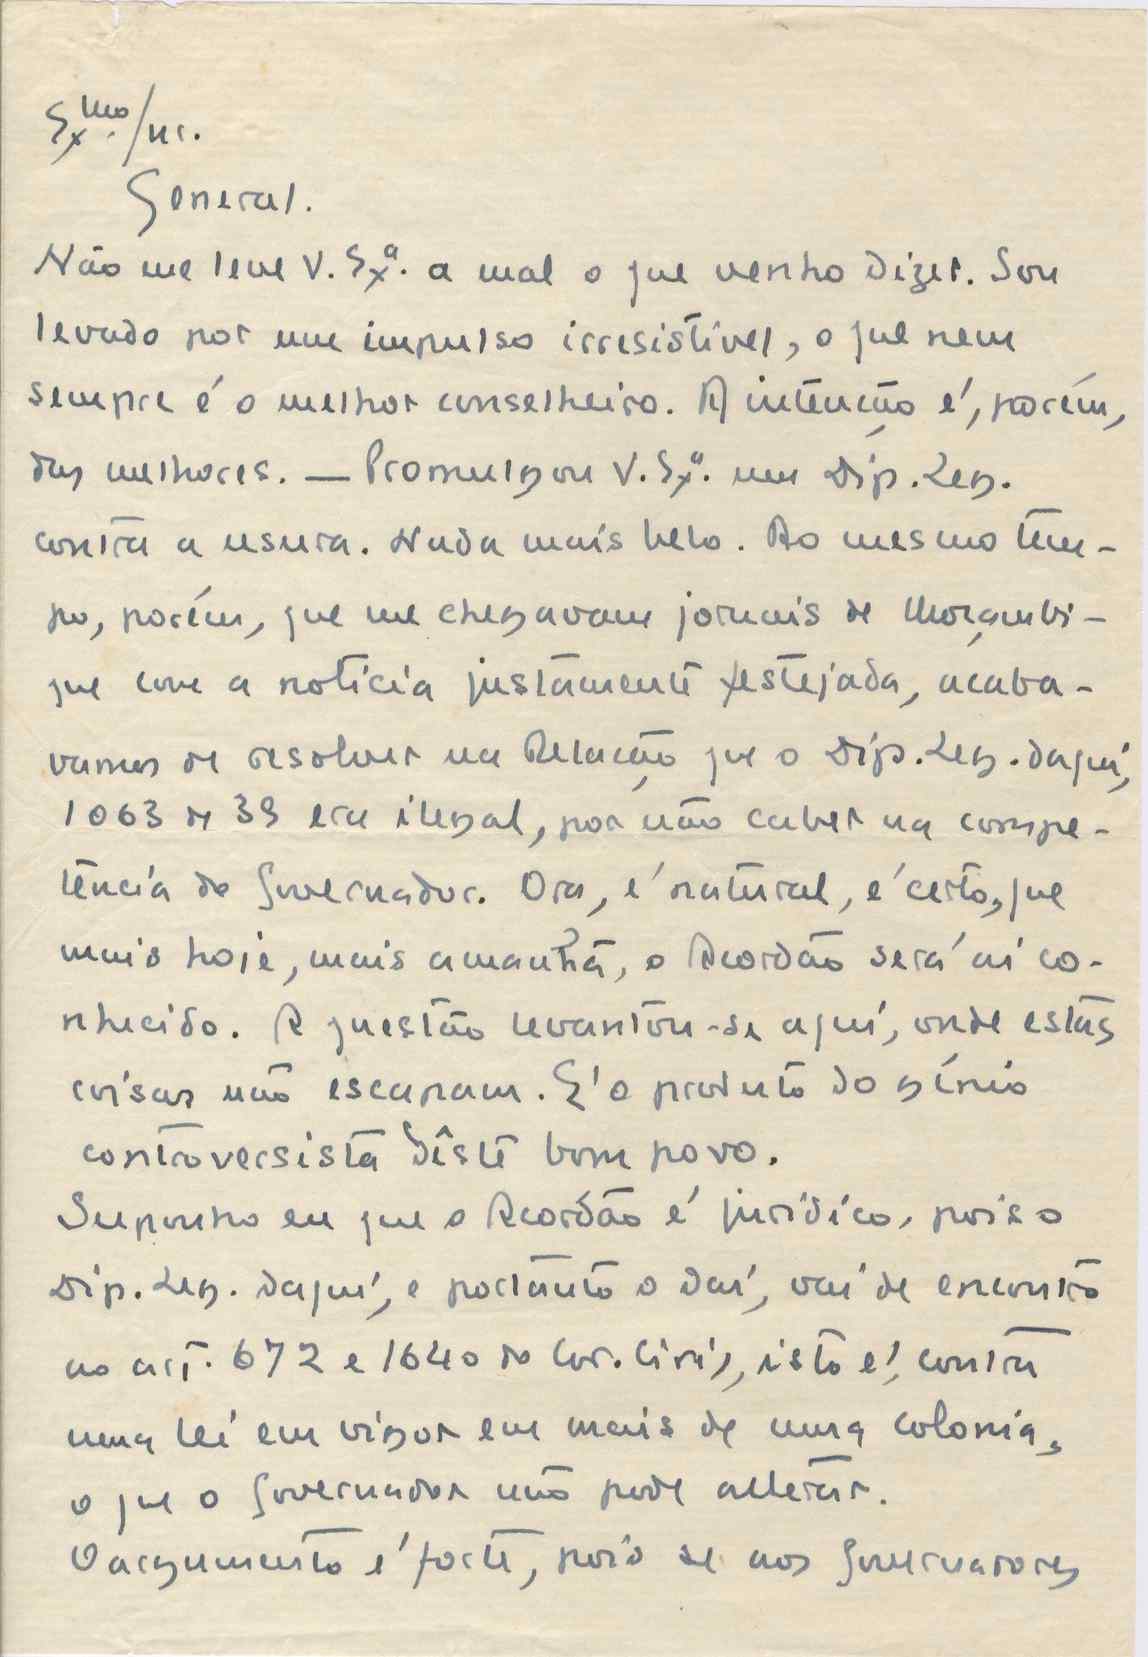 Ex.mo/Snr.
General.
Não me leve V. Exª. a mal o que venho dizer. Sou
levado por um impulso irresistível, o que nem
sempre é o melhor conselheiro. A intenção é, porém,
das melhores. — Promulgou V. Exª. um Dip. Leg.
contra a usura. Nada mais belo. Ao mesmo tem-
po, porém, que me chegavam jornais de Moçambi-
que com a notícia justamente festejada, acaba-
vamos de resolver na Relação que o Dip. Leg. daquí,
1063 de 39 era ilegal, por não caber na compe-
tência do Governador. Ora, é natural, é certo, que
mais hoje, mais amanhã, o Acordão será aí co-
nhecido. A questão levantou-se aquí, onde estas
coisas não escapam. E' o produto do génio
controversista dêste bom povo.
Suponho eu que o Acordão é jurídico, pois o
Dip. Leg. daquí, e portanto o daí, vai de encontro
ao art. 672 e 1640 do Cod. Civil, isto é, contra
uma lei em vigor em mais de uma colonia,
o que o Governador não pode alterar.
O argumento é forte, pois se aos Governadores